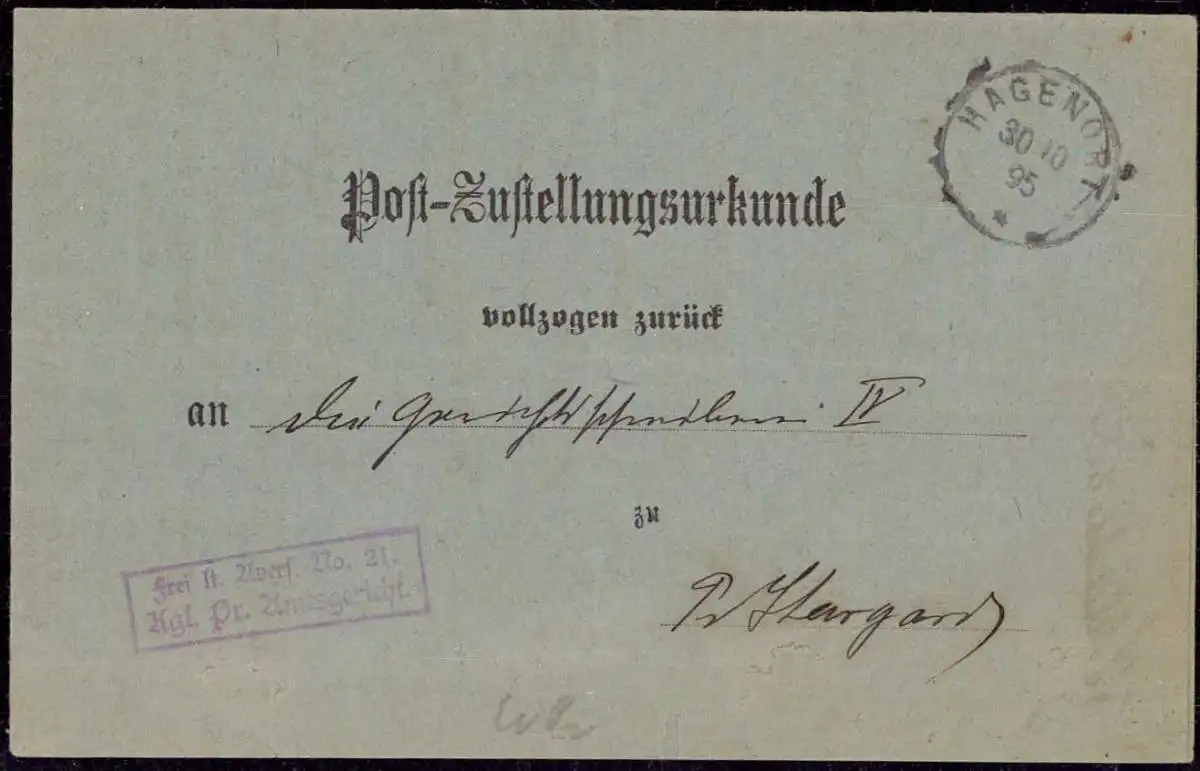 HAGENORT
30 10
95
Post-Zustellungsurkunde
vollzogen zurück
an die Gerichtsschreiberei IV
zu
Pr Stargard
Frei lt. Avers. No. 21.
Kgl. Pr. Amtsgericht.